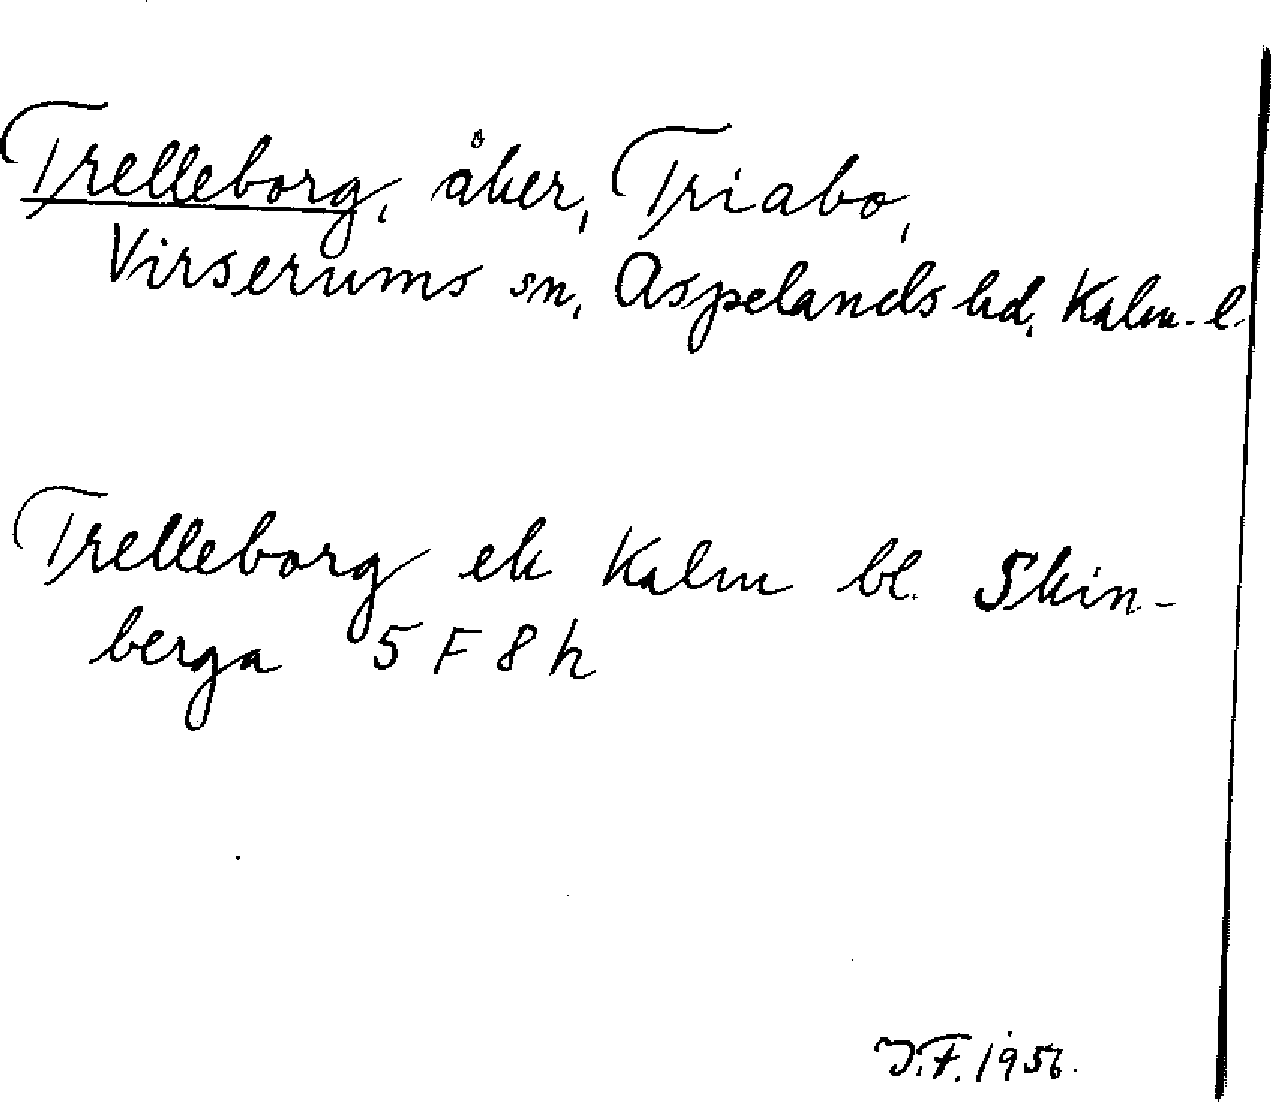 Trelleborg, åker, Triabo,
Virserums sn, Aspelands hd, Kalm. l.
Trelleborg ek Kalm bl. Skin-
berga 5 F 8 h
J.F. 1956.